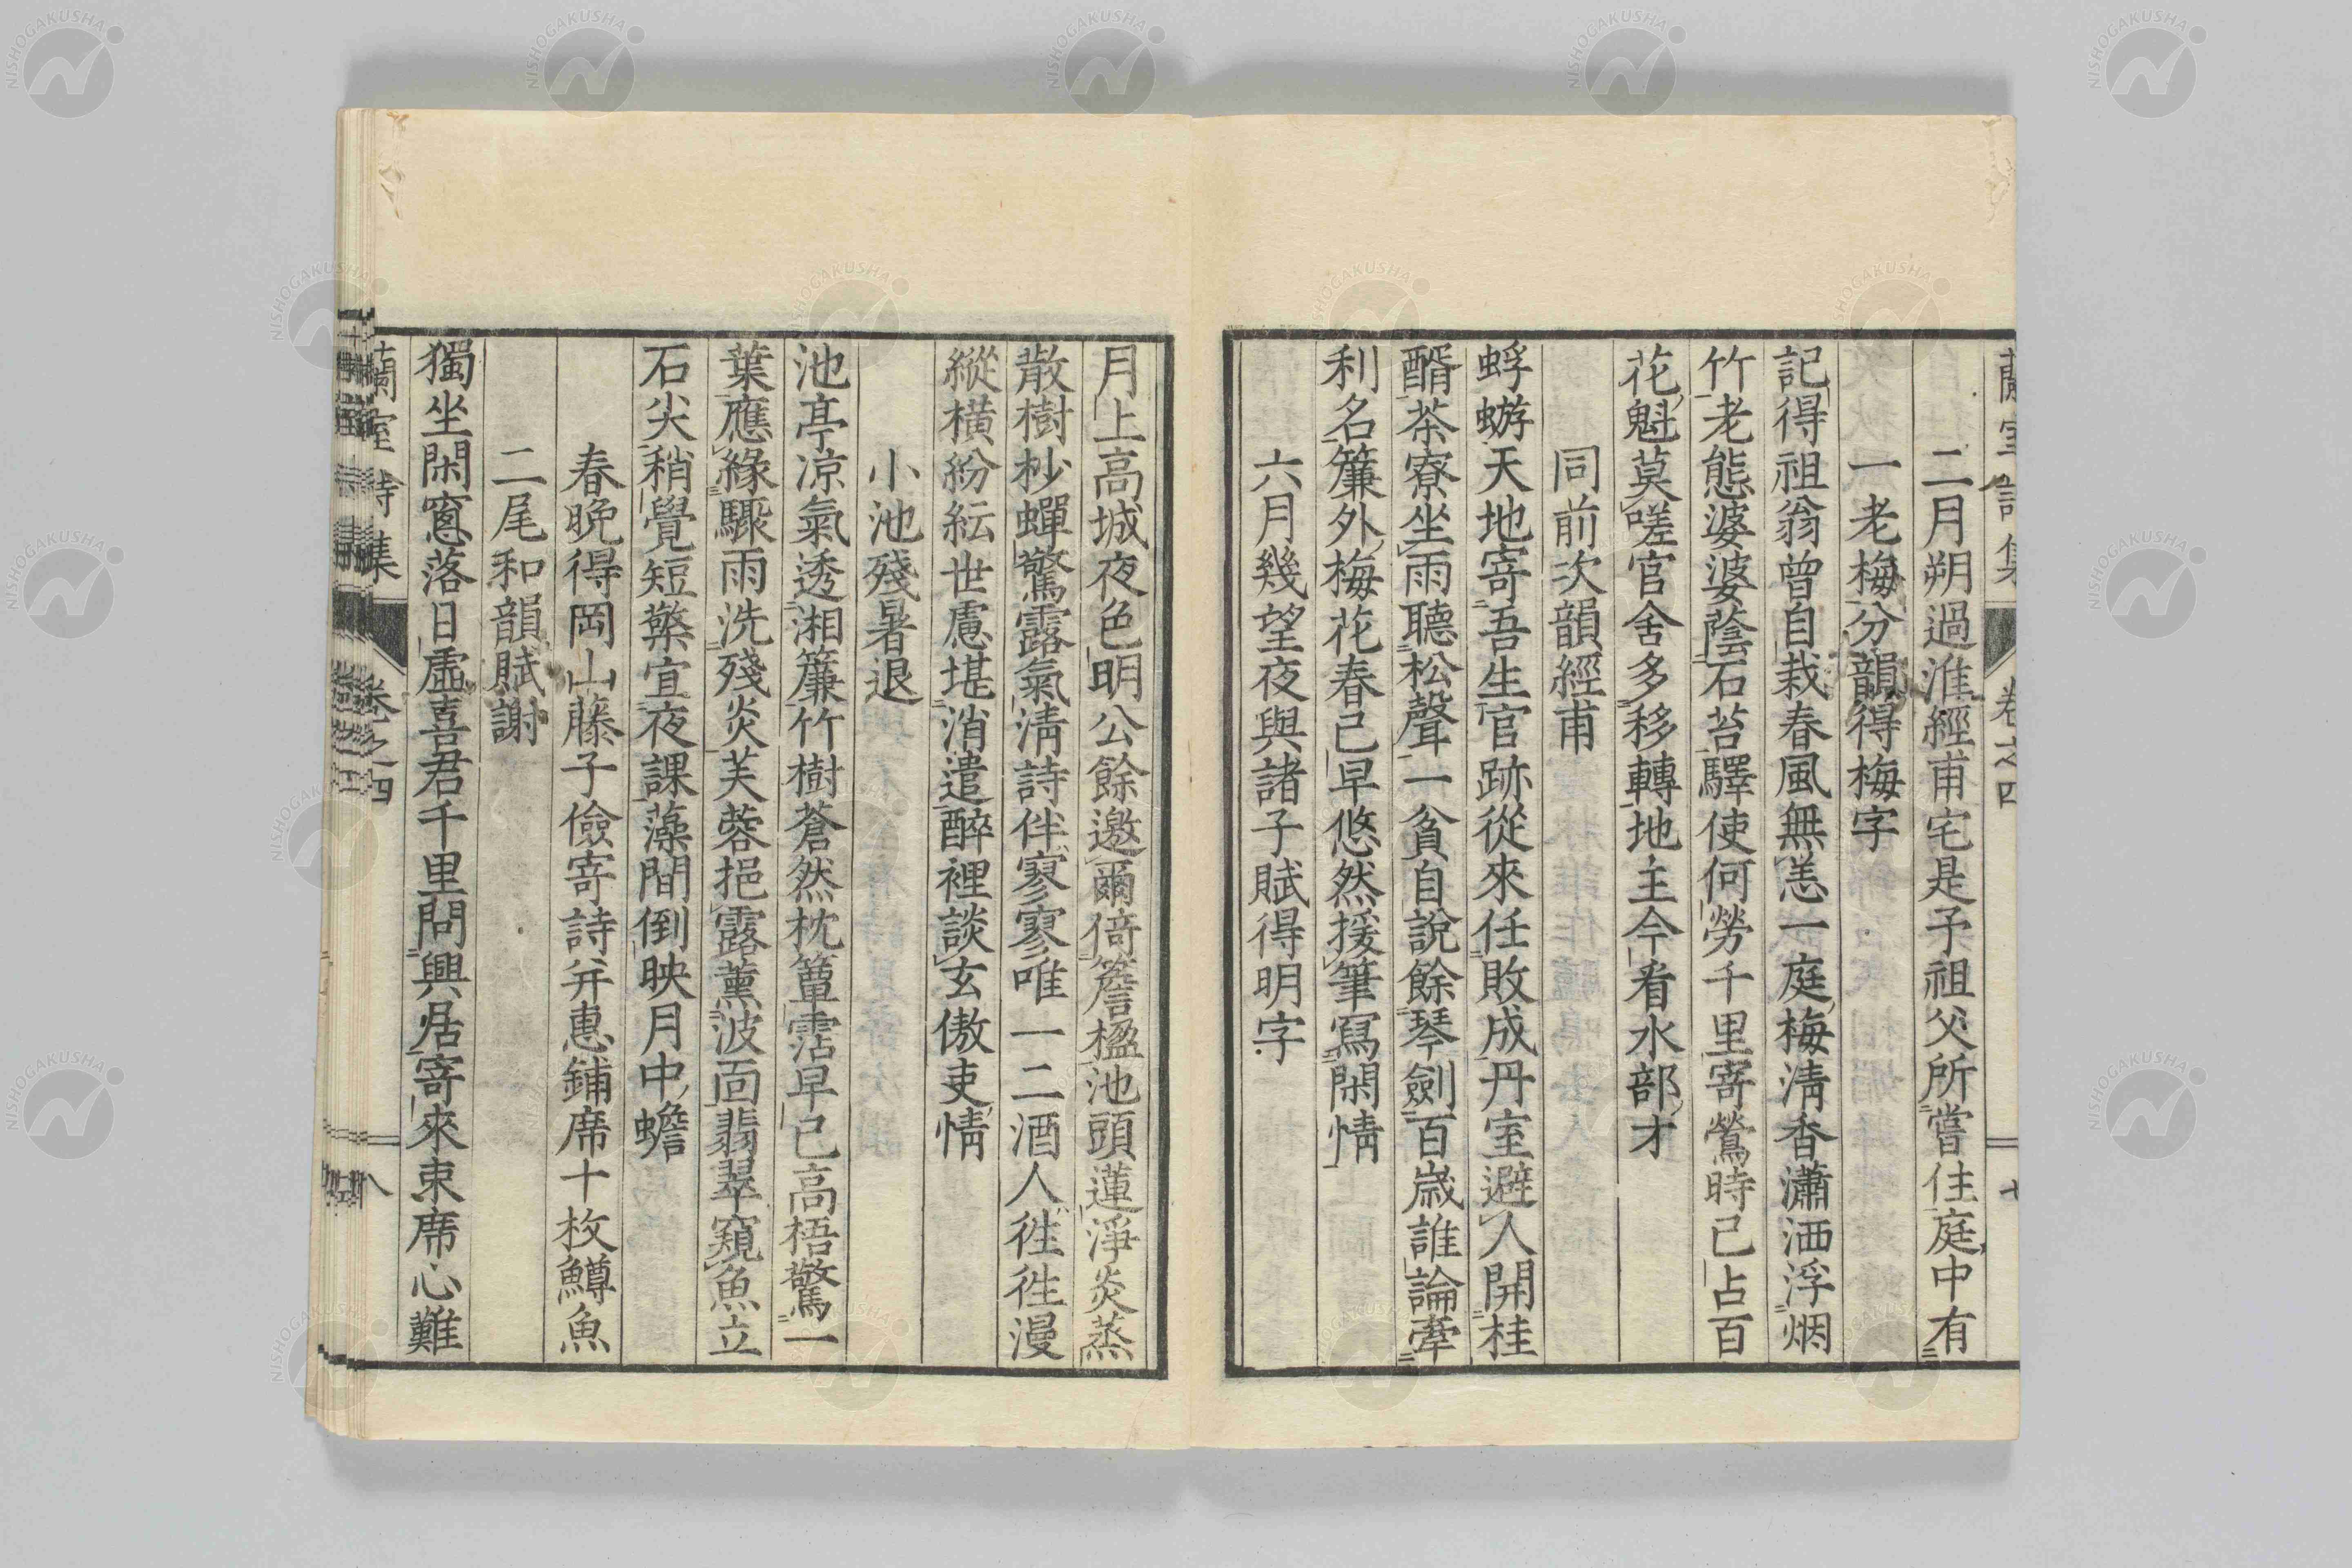 蘭室詩集 卷之四 七
二月朔過淮經甫宅是子祖父所嘗住庭中有
一老梅分韻得梅字
記得祖翁曾自栽春風無恙一庭梅淸香瀟洒浮烟
竹老態婆婆蔭石苔驛使何勞千里寄鶯時已占百
花魁莫嗟官舍多移轉地主今看水部才
同前次韻經甫
蜉蝣天地寄吾生官跡從來任敗成丹室避人開桂
醑茶寮坐雨聽松聲一貧自說餘琴劍百歲誰論牽
利名簾外梅花春已早悠然援筆寫閑情
六月幾望夜與諸子賦得明字
月上高城夜色明公餘邀爾倚簷楹池頭蓮淨炎蒸
散樹杪蟬驚露氣淸詩伴寥寥唯一二酒人徃徃漫
縱橫紛紜世慮堪消遣醉裡談玄傲吏情
小池殘暑退
池亭凉氣透湘簾竹樹蒼然枕簟霑早已高梧驚一
葉應緣驟雨洗殘炎芙蓉挹露薰波面翡翠窺魚立
石尖稍覺短檠宜夜課藻間倒映月中蟾
春晚得岡山藤子儉寄詩并惠鋪席十枚鱒魚
二尾和韻賦謝
獨坐閑窻落日虛喜君千里問興居寄來束席心難
蘭室詩集 卷之四 八
NISHOGAKUSHA